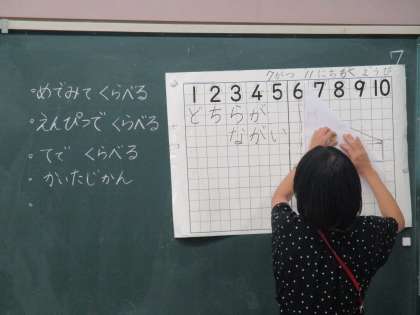 。めでみて くらべる
。えんぴつで くらべる
。てで くらべる
。かいたじかん
。
7がつ 11にち
1 2 3 4 5 6 7 8 9 10
どちらが
ながい